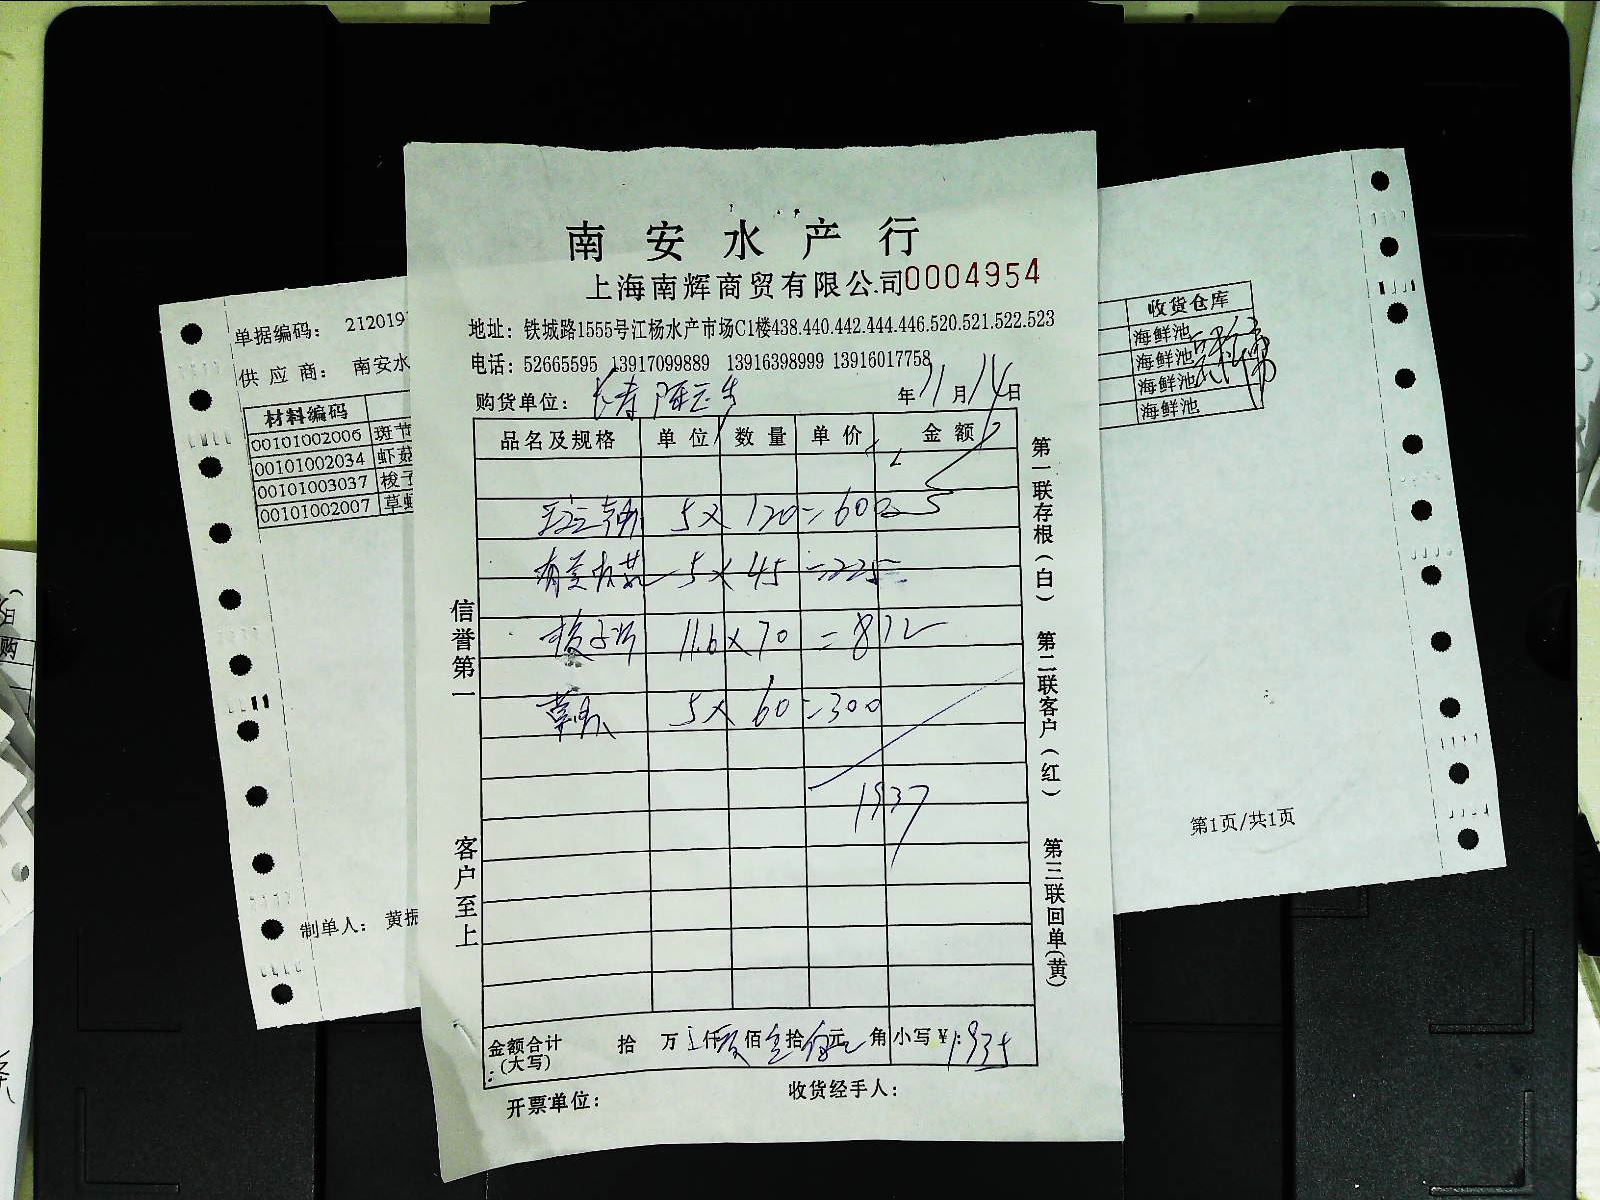 南安水产行
上海南辉商贸有限公司0004954
地址：铁城路1555号江杨水产市场C1楼438.440.442.444.446.520.521.522.523
电话：52665595 13917099889 13916398999 13916017758
购货单位： 年11月14日
品名及规格 单位 数量 单价 金额
5× 120=600
5×45=225
梭子 11.6×70=812
草虾 5×60=300
1937
金额合计(大写)： 拾 万 仟 佰 拾 元 角 小写￥：1935
开票单位： 收货经手人：
信誉第一
客户至上
第一联存根(白)
第二联客户(红)
第三联回单(黄)
单据编码： 212019
供应商： 南安水
材料编码
00101002006 斑节
00101002034 虾菇
00101003037 梭子
00101002007 草虾
制单人： 黄振
收货仓库
海鲜池
海鲜池
海鲜池
海鲜池
第1页/共1页